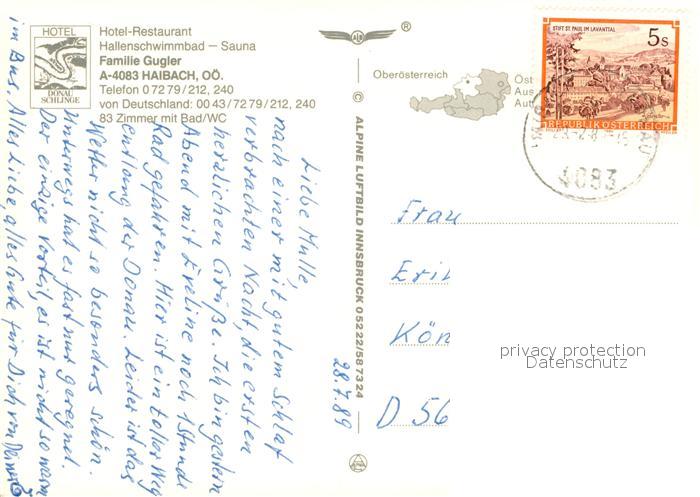 HOTEL
DONAU
SCHLINGE
Hotel-Restaurant
Hallenschwimmbad — Sauna
Familie Gugler
A-4083 HAIBACH, OÖ.
Telefon 0 72 79 / 212, 240
von Deutschland: 00 43 / 72 79 / 212, 240
83 Zimmer mit Bad/WC
ALB
®
Oberösterreich
Öst
Aus
Aut
STIFT ST. PAUL IM LAVANTTAL
5 S
REPUBLIK ÖSTERREICH
4083
© ALPINE LUFTBILD INNSBRUCK 05222/587324
28.7.89
Liebe Mulle,
nach einer mit gutem Schlaf
verbrachten Nacht, die ersten
herzlichen Grüße. Ich bin gestern
Abend mit Eveline noch 1 Stunde
Rad gefahren. Hier ist ein toller Weg
entlang der Donau. Leider ist das
Wetter nicht so besonders schön.
Unterwegs hat es fast nur geregnet.
Der einzige Vorteil, es ist nicht so warm
im Bus. Alles Liebe alles Gute für Dich von
Frau
Eri
Kön
D 56
privacy protection
Datenschutz